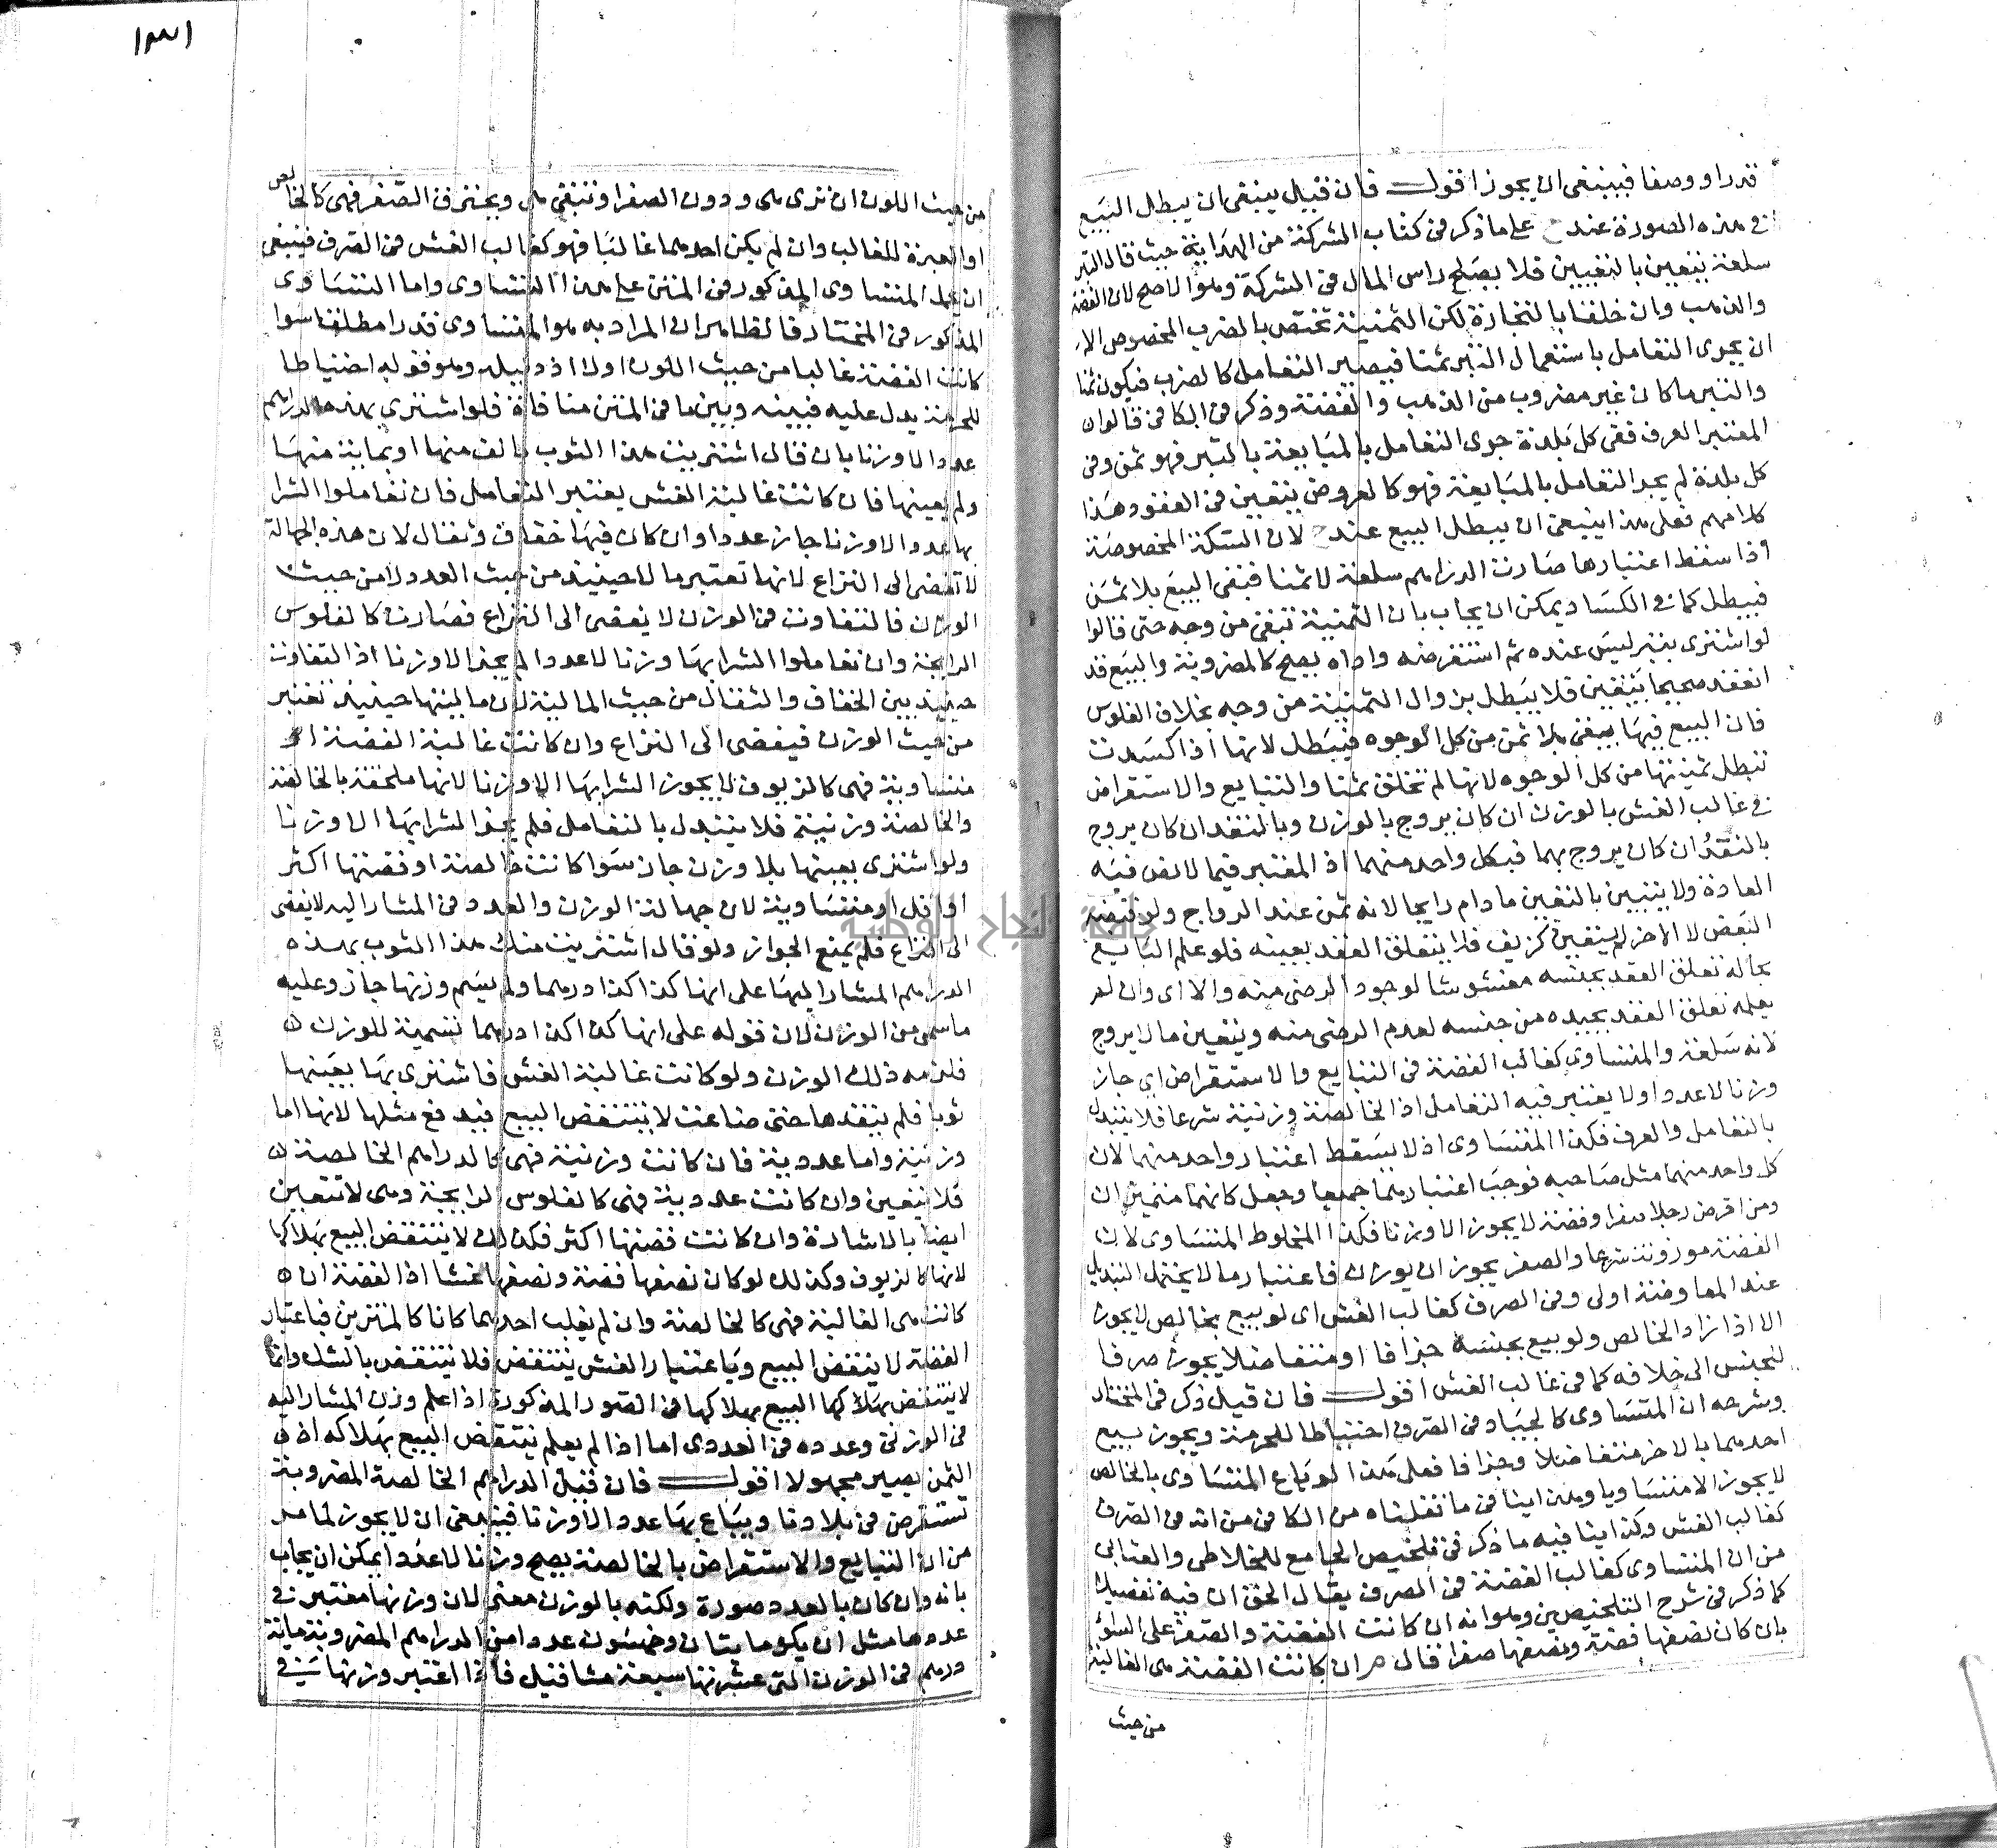 قدرا ووصفا فينبغى ان يجوز اقول فان قيل ينبغى ان يبطل البيع
فى هذه الصورة عند ح على ما ذكر فى كتاب الشركة من الهداية حيث قال التبر
سلعة يتعين بالتعيين فلا يصلح راس المال فى الشركة وهو الاصح لان الفضة
والذهب وان خلقا بالتجارة لكن الثمنية تختص بالضرب المخصوص الا
ان يجرى التعامل باستعمال التبر ثمنا فيصير التعامل كالضرب فيكون ثمنا
والتبر ما كان غير مضروب من الذهب والفضة وذكر فى الكافى قالوا ان
المعتبر العرف ففى كل بلدة جرى التعامل بالمبايعة بالتبر فهو ثمن وفى
كل بلدة لم يجر التعامل بالمبايعة فهو كالعروض يتعين فى العقود وهذا
كلامهم فعلى هذا ينبغى ان يبطل البيع عند ح لان السكة المخصوصة
اذا سقط اعتبارها صارت الدراهم سلعة لا ثمنا فبقى البيع بلا ثمن
فيبطل كما فى الكساد ويمكن ان يجاب بان الثمنية تبقى من وجه حتى قالوا
لو اشترى بتبر ليس عنده ثم استقرضه واداه يصح كالمضروبة والبيع قد
انعقد صحيحا بيقين فلا يبطل بزوال الثمنية من وجه بخلاف الفلوس
فان البيع فيها يبقى بلا ثمن من كل الوجوه فيبطل لانها اذا كسدت
تبطل ثمنيتها من كل الوجوه لانها لم تخلق ثمنا والتبايع والاستقراض
فى غالب الغش بالوزن ان كان يروج بالوزن وبالعدد ان كان يروج
بالعدد ان كان يروج بهما فبكل واحد منهما اذ المعتبر فيما لا نص فيه
العادة ولا يتعين بالتعيين ما دام رايجا لانه ثمن عند الرواج ولو قبضه
البعض لا الاخر لم يتعين كزيف فلا يتعلق العقد بعينه فلو علم البايع
بحاله تعلق العقد بجنسه مغشوشا لوجود الرضى منه والا اى وان لم
يعلمه تعلق العقد بجيده من جنسه لعدم الرضى منه ويتعين ما لا يروج
لانه سلعة والمتساوى كغالب الفضة فى التبايع والاستقراض اى جاز
وزنا لا عددا ولا يعتبر فيه التعامل اذ الخالصة وزنية شرعا فلا يتبدل
بالتعامل والعرف فكذا المتساوى اذ لا يسقط اعتبار واحد منهما لان
كل واحد منهما مثل صاحبه فوجب اعتبارهما جميعا وجعل كانهما متميزان
ومن اقرض رجلا صفرا وفضة لا يجوز الا وزنا فكذا المخلوط المتساوى لان
الفضة موزونة شرعا والصفر يجوز ان يوزن فاعتبار ما لا يحتمل التبديل
عند المعاوضة اولى وفى الصرف كغالب الغش اى لو بيع بخالص لا يجوز
الا اذا زاد الخالص ولو بيع بجنسه جزافا او متفاضلا يجوز صرفا
للجنس الى خلافه كما فى غالب الغش اقول فان قيل ذكر فى المختار
وشرحه ان المتساوى كالجياد فى الصرف احتياطا للحرمة ويجوز بيع
احدهما بالاخر متفاضلا وجزافا فعلى هذا لو باع المتساوى بالخالص
لا يجوز الا متساويا وهذا ينافى ما نقلناه من الكافى من انه فى الصرف
كغالب الغش وكذا ينافيه ما ذكر فى تلخيص الجامع للخلاطى والعتابى
من ان المتساوى كغالب الفضة فى الصرف يقال الحق ان فيه تفصيلا
كما ذكر فى شرح التلخيصين وهو انه ان كانت الفضة والصفر على السواء
بان كان نصفها فضة ونصفها صفرا قال م ان كانت الفضة هى الغالبة
من حيث
من حيث اللون ان ترى هى دون الصفر او تبقى هى ويحترق الصفر فهى كالخالص
اذ العبرة للغالب وان لم يكن احدهما غالبا فهو كغالب الغش فى الصرف فينبغى
ان يحمل المتساوى المذكور فى المتن على هذا التساوى واما التساوى
المذكور فى المختار فالظاهر ان المراد به هو المتساوى قدرا مطلقا سوا
كانت الفضة غالبا من حيث اللون او لا اذ دليله وهو قوله احتياطا
للحرمة يدل عليه فبينه وبين ما فى المتن منافاة فلو اشترى بهذه الدراهم
عددا لا وزنا بان قال اشتريت هذا الثوب بالف منها او بماية منها
ولم يعينها فان كانت غالبة الغش يعتبر التعامل فان تعاملوا الشرا
بها عددا لا وزنا جاز عددا وان كان فيها خفاف وثقال لان هذه الجهالة
لا تفضى الى النزاع لانها تعتبر مالا حينيذ من حيث العدد لا من حيث
الوزن فالتفاوت فى الوزن لا يفضى الى النزاع فصارت كالفلوس
الرايجة وان تعاملوا الشرا بها وزنا لا عددا لم يجز الا وزنا اذ التفاوت
حينيذ بين الخفاف والثقال من حيث المالية لان ماليتها حينيذ تعتبر
من حيث الوزن فيفضى الى النزاع وان كانت غالبة الفضة او
متساوية فهى كالزيوف لا يجوز الشرا بها الا وزنا لانها ملحقة بالخالصة
والخالصة وزنية فلا يتبدل بالتعامل فلم يجز الشرا بها الا وزنا
ولو اشترى بعينها بلا وزن جاز سوا كانت خالصة او فضتها اكثر
او اقل او متساوية لان جهالة الوزن والعدد فى المشار اليه لا يفضى
الى النزاع فلم يمنع الجواز ولو قال اشتريت منك هذا الثوب بهذه
الدراهم المشار اليها على انها كذا كذا درهما ولم يسم وزنها جاز وعليه
ما سمى من الوزن لان قوله على انها كذا كذا درهما تسمية للوزن
فلزمه ذلك الوزن ولو كانت غالبة الغش فاشترى بها بعينها
ثوبا فلم ينقدها حتى ضاعت لا ينتقض البيع فيدفع مثلها لانها اما
وزنية واما عددية فان كانت وزنية فهى كالدراهم الخالصة
فلا يتعين وان كانت عددية فهى كالفلوس الرايجة وهى لا تتعين
ايضا بالاشارة وان كانت فضتها اكثر فكذلك لا ينتقض البيع بهلاكها
لانها كالزيوف وكذلك لو كان نصفها فضة ونصفها غشا اذ الفضة ان
كانت هى الغالبة فهى كالخالصة وان لم يغلب احدهما كانا كالمتميزين فباعتبار
الفضة لا ينتقض البيع وباعتبار الغش ينتقض فلا ينتقض بالشك وانما
لا ينتقض بهلاكها البيع بهلاكها فى الصور المذكورة اذا علم وزن المشار اليه
فى الوزنى وعدده فى العددى اما اذا لم يعلم ينتقض البيع بهلاكه اذ
الثمن يصير مجهولا اقول فان قيل الدراهم الخالصة المضروبة
تستقرض فى بلادنا ويباع بها عددا لا وزنا فينبغى ان لا يجوز لما مر
من ان التبايع والاستقراض بالخالصة يصح وزنا لا عددا يمكن ان يجاب
بانه وان كان بالعدد صورة ولكنه بالوزن معنى لان وزنها معتبر فى
عددها مثل ان يكون مايتان وخمسون عددا من الدراهم المضروبة ماية
درهم فى الوزن التى عشرتها سبعة مثاقيل فاذا اعتبر وزنها فى